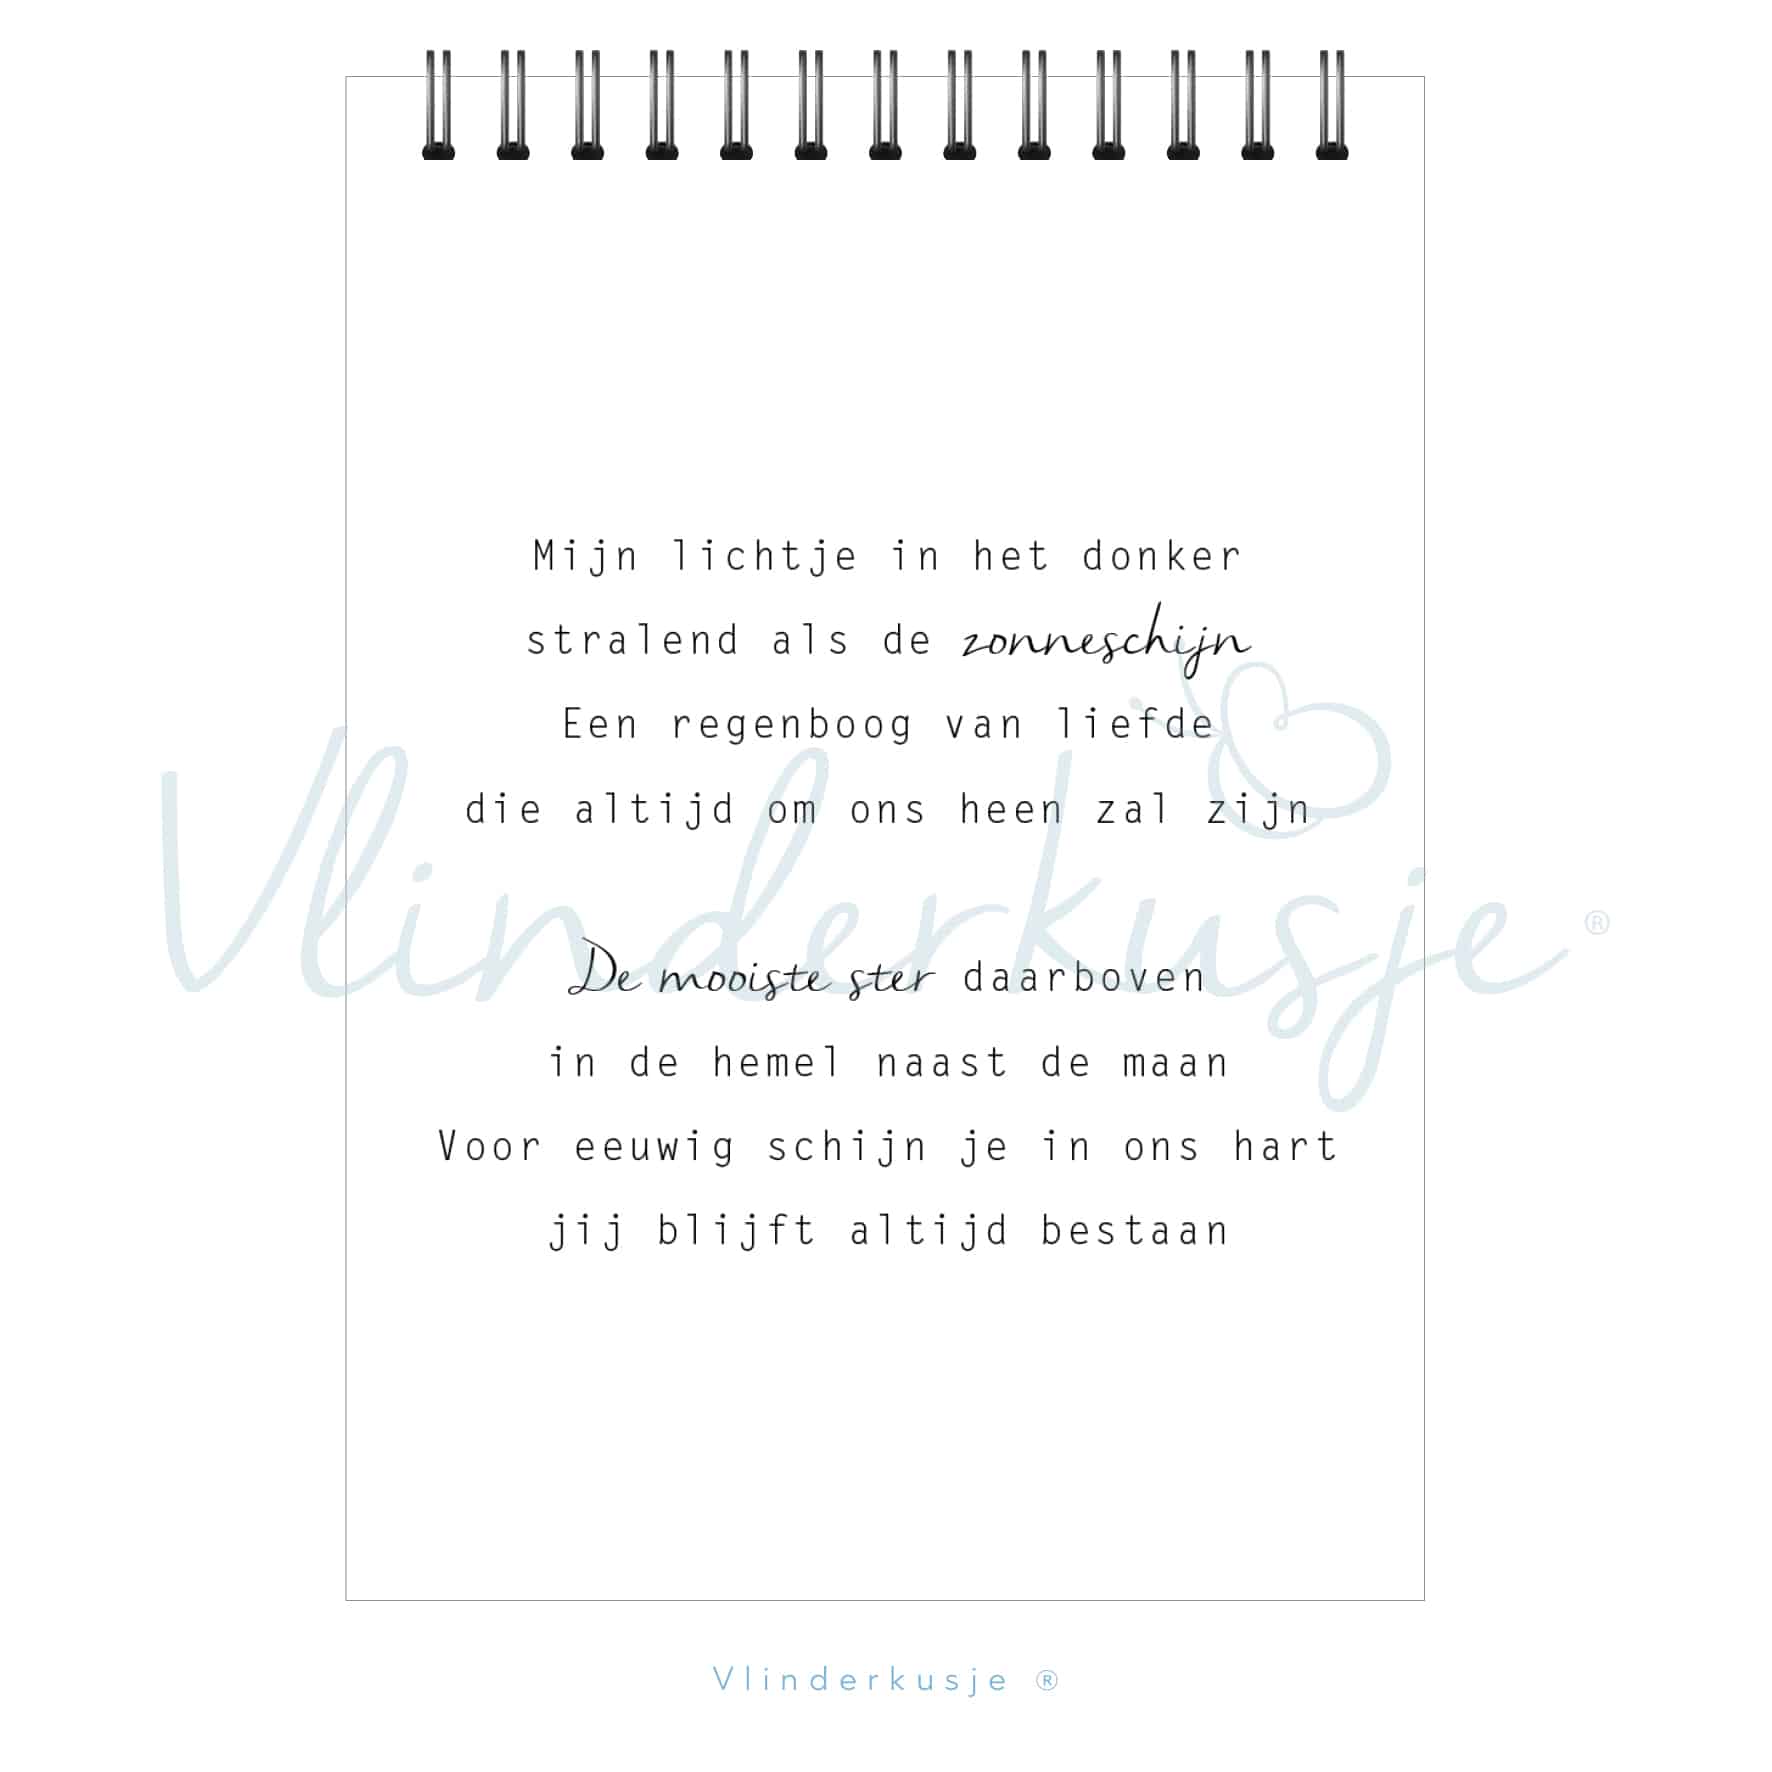 Mijn lichtje in het donker
stralend als de zonneschijn
Een regenboog van liefde
die altijd om ons heen zal zijn
Vlinderkusje ®
De mooiste ster daarboven
in de hemel naast de maan
Voor eeuwig schijn je in ons hart
jij blijft altijd bestaan
Vlinderkusje ®